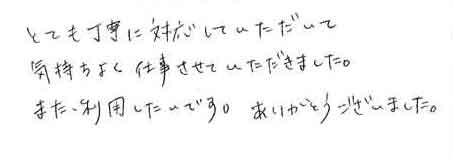 とても丁寧に対応していただいて
気持ちよく仕事させていただきました。
また、利用したいです。ありがとうございました。